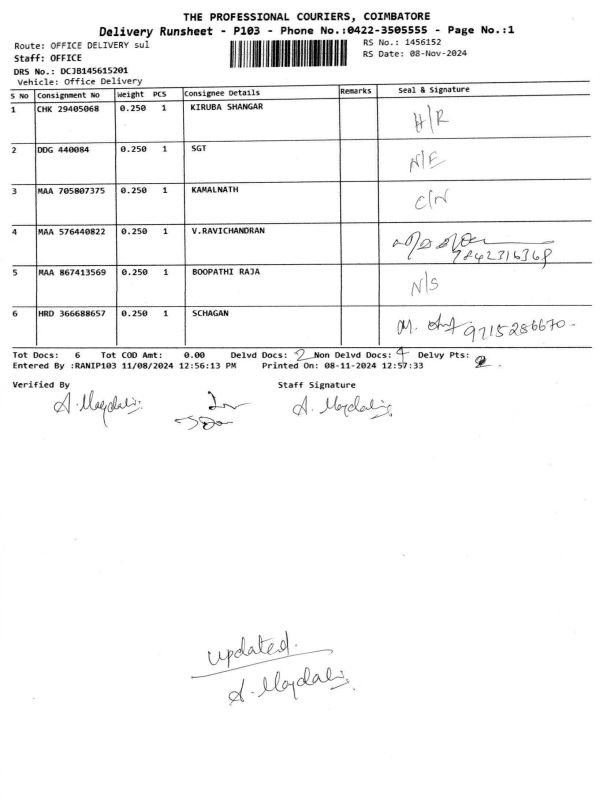 THE PROFESSIONAL COURIERS, COIMBATORE
Delivery Runsheet - P103 - Phone No.:0422-3505555 - Page No.:1
Route: OFFICE DELIVERY sul RS No.: 1456152
Staff: OFFICE RS Date: 08-Nov-2024
DRS No.: DCJB145615201
Vehicle: Office Delivery
S No Consignment No Weight PCS Consignee Details Remarks Seal & Signature
1 CHK 29405068 0.250 1 KIRUBA SHANGAR H/R
2 DDG 440084 0.250 1 SGT N/E
3 MAA 705807375 0.250 1 KAMALNATH C/N
4 MAA 576440822 0.250 1 V.RAVICHANDRAN
9842316368
5 MAA 867413569 0.250 1 BOOPATHI RAJA N/S
6 HRD 366688657 0.250 1 SCHAGAN M. 9715286670
Tot Docs: 6 Tot COD Amt: 0.00 Delvd Docs: 2 Non Delvd Docs: 4 Delvy Pts:
Entered By :RANIP103 11/08/2024 12:56:13 PM Printed On: 08-11-2024 12:57:33
Verified By Staff Signature
A. Magdalin A. Magdalin
updated.
A. Magdalin